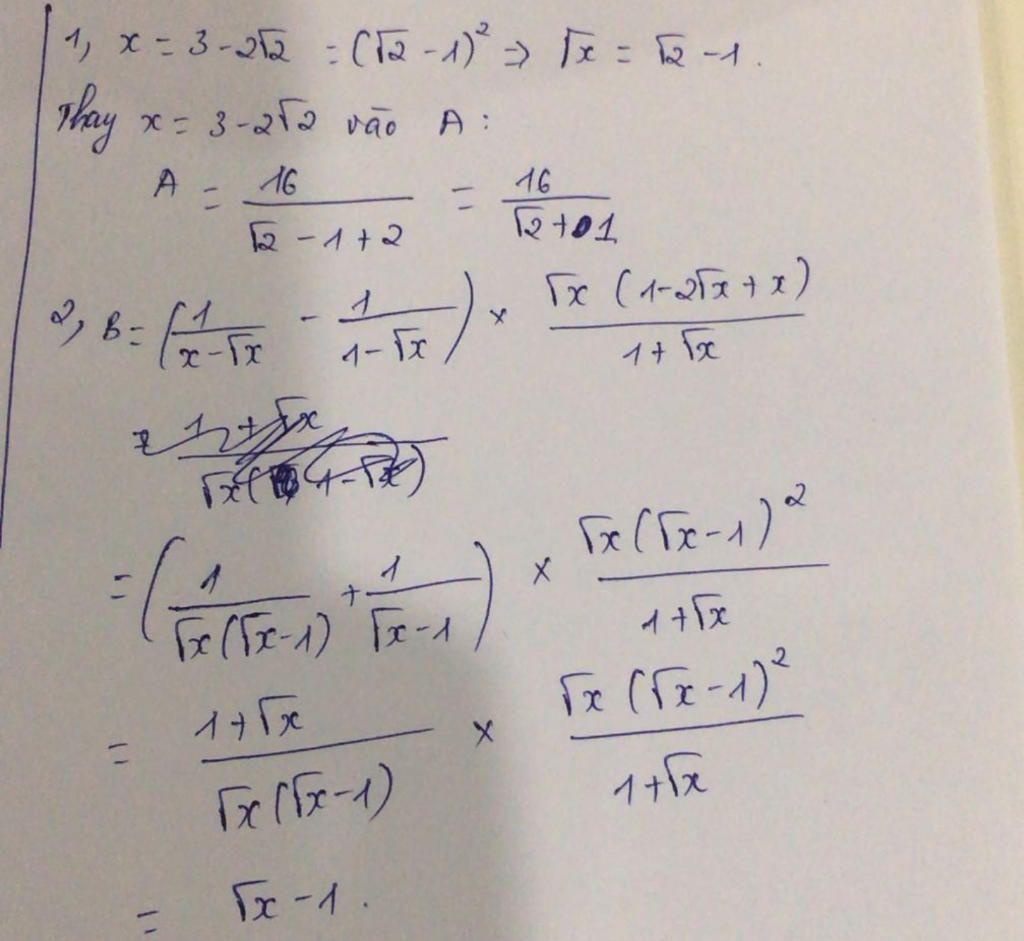 1, x = 3 - 2√2 = (√2 - 1)² => √x = √2 - 1.
Thay x = 3 - 2√2 vào A :
A = 16/(√2 - 1 + 2) = 16/(√2 + 1)
2, B = (1/(x - √x) - 1/(1 - √x)) × √x (1 - 2√x + x)/(1 + √x)
= (1/(√x(√x - 1)) + 1/(√x - 1)) × √x(√x - 1)²/(1 + √x)
= (1 + √x)/(√x(√x - 1)) × √x (√x - 1)²/(1 + √x)
= √x - 1.